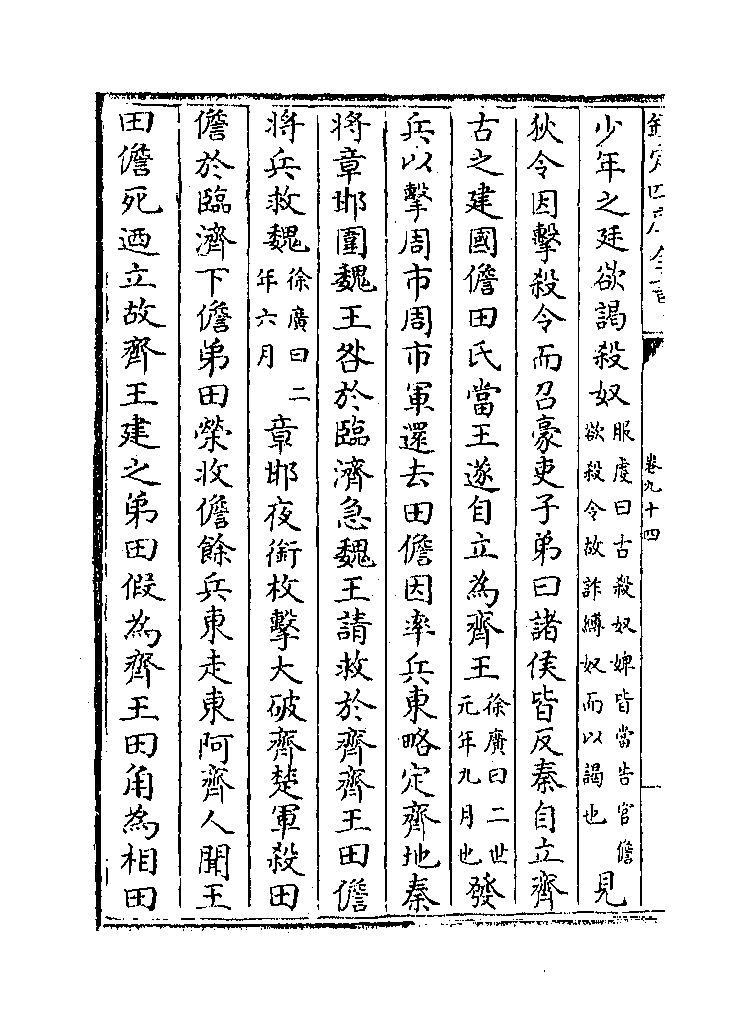 卷九十四
少年之廷欲謁殺奴服虔曰古殺奴婢皆當告官儋欲殺令故詐縛奴而以謁也見
狄令因擊殺令而召豪吏子弟曰諸侯皆反秦自立齊
古之建國儋田氏當王遂自立為齊王徐廣曰二世元年九月也發
兵以擊周市周市軍還去田儋因率兵東略定齊地秦
將章邯圍魏王咎於臨濟急魏王請救於齊齊王田儋
將兵救魏徐廣曰二年六月章邯夜銜枚擊大破齊楚軍殺田
儋於臨濟下儋弟田榮收儋餘兵東走東阿齊人聞王
田儋死迺立故齊王建之弟田假為齊王田角為相田